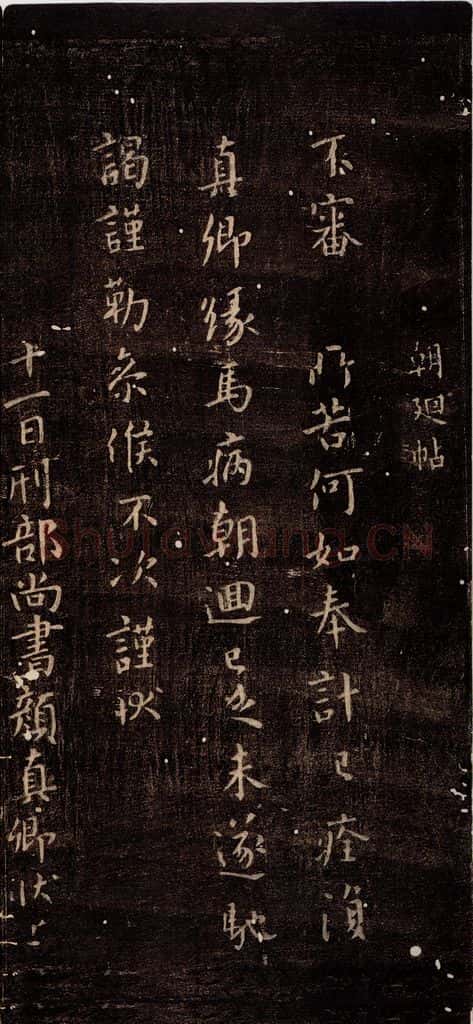 朝廻帖
不審 所苦何如奉計已痊復
真卿緣馬病朝迴已乏未遂馳
謁謹勒參候不次謹狀
十一日刑部尚書顏真卿狀上
Shufawang.CN